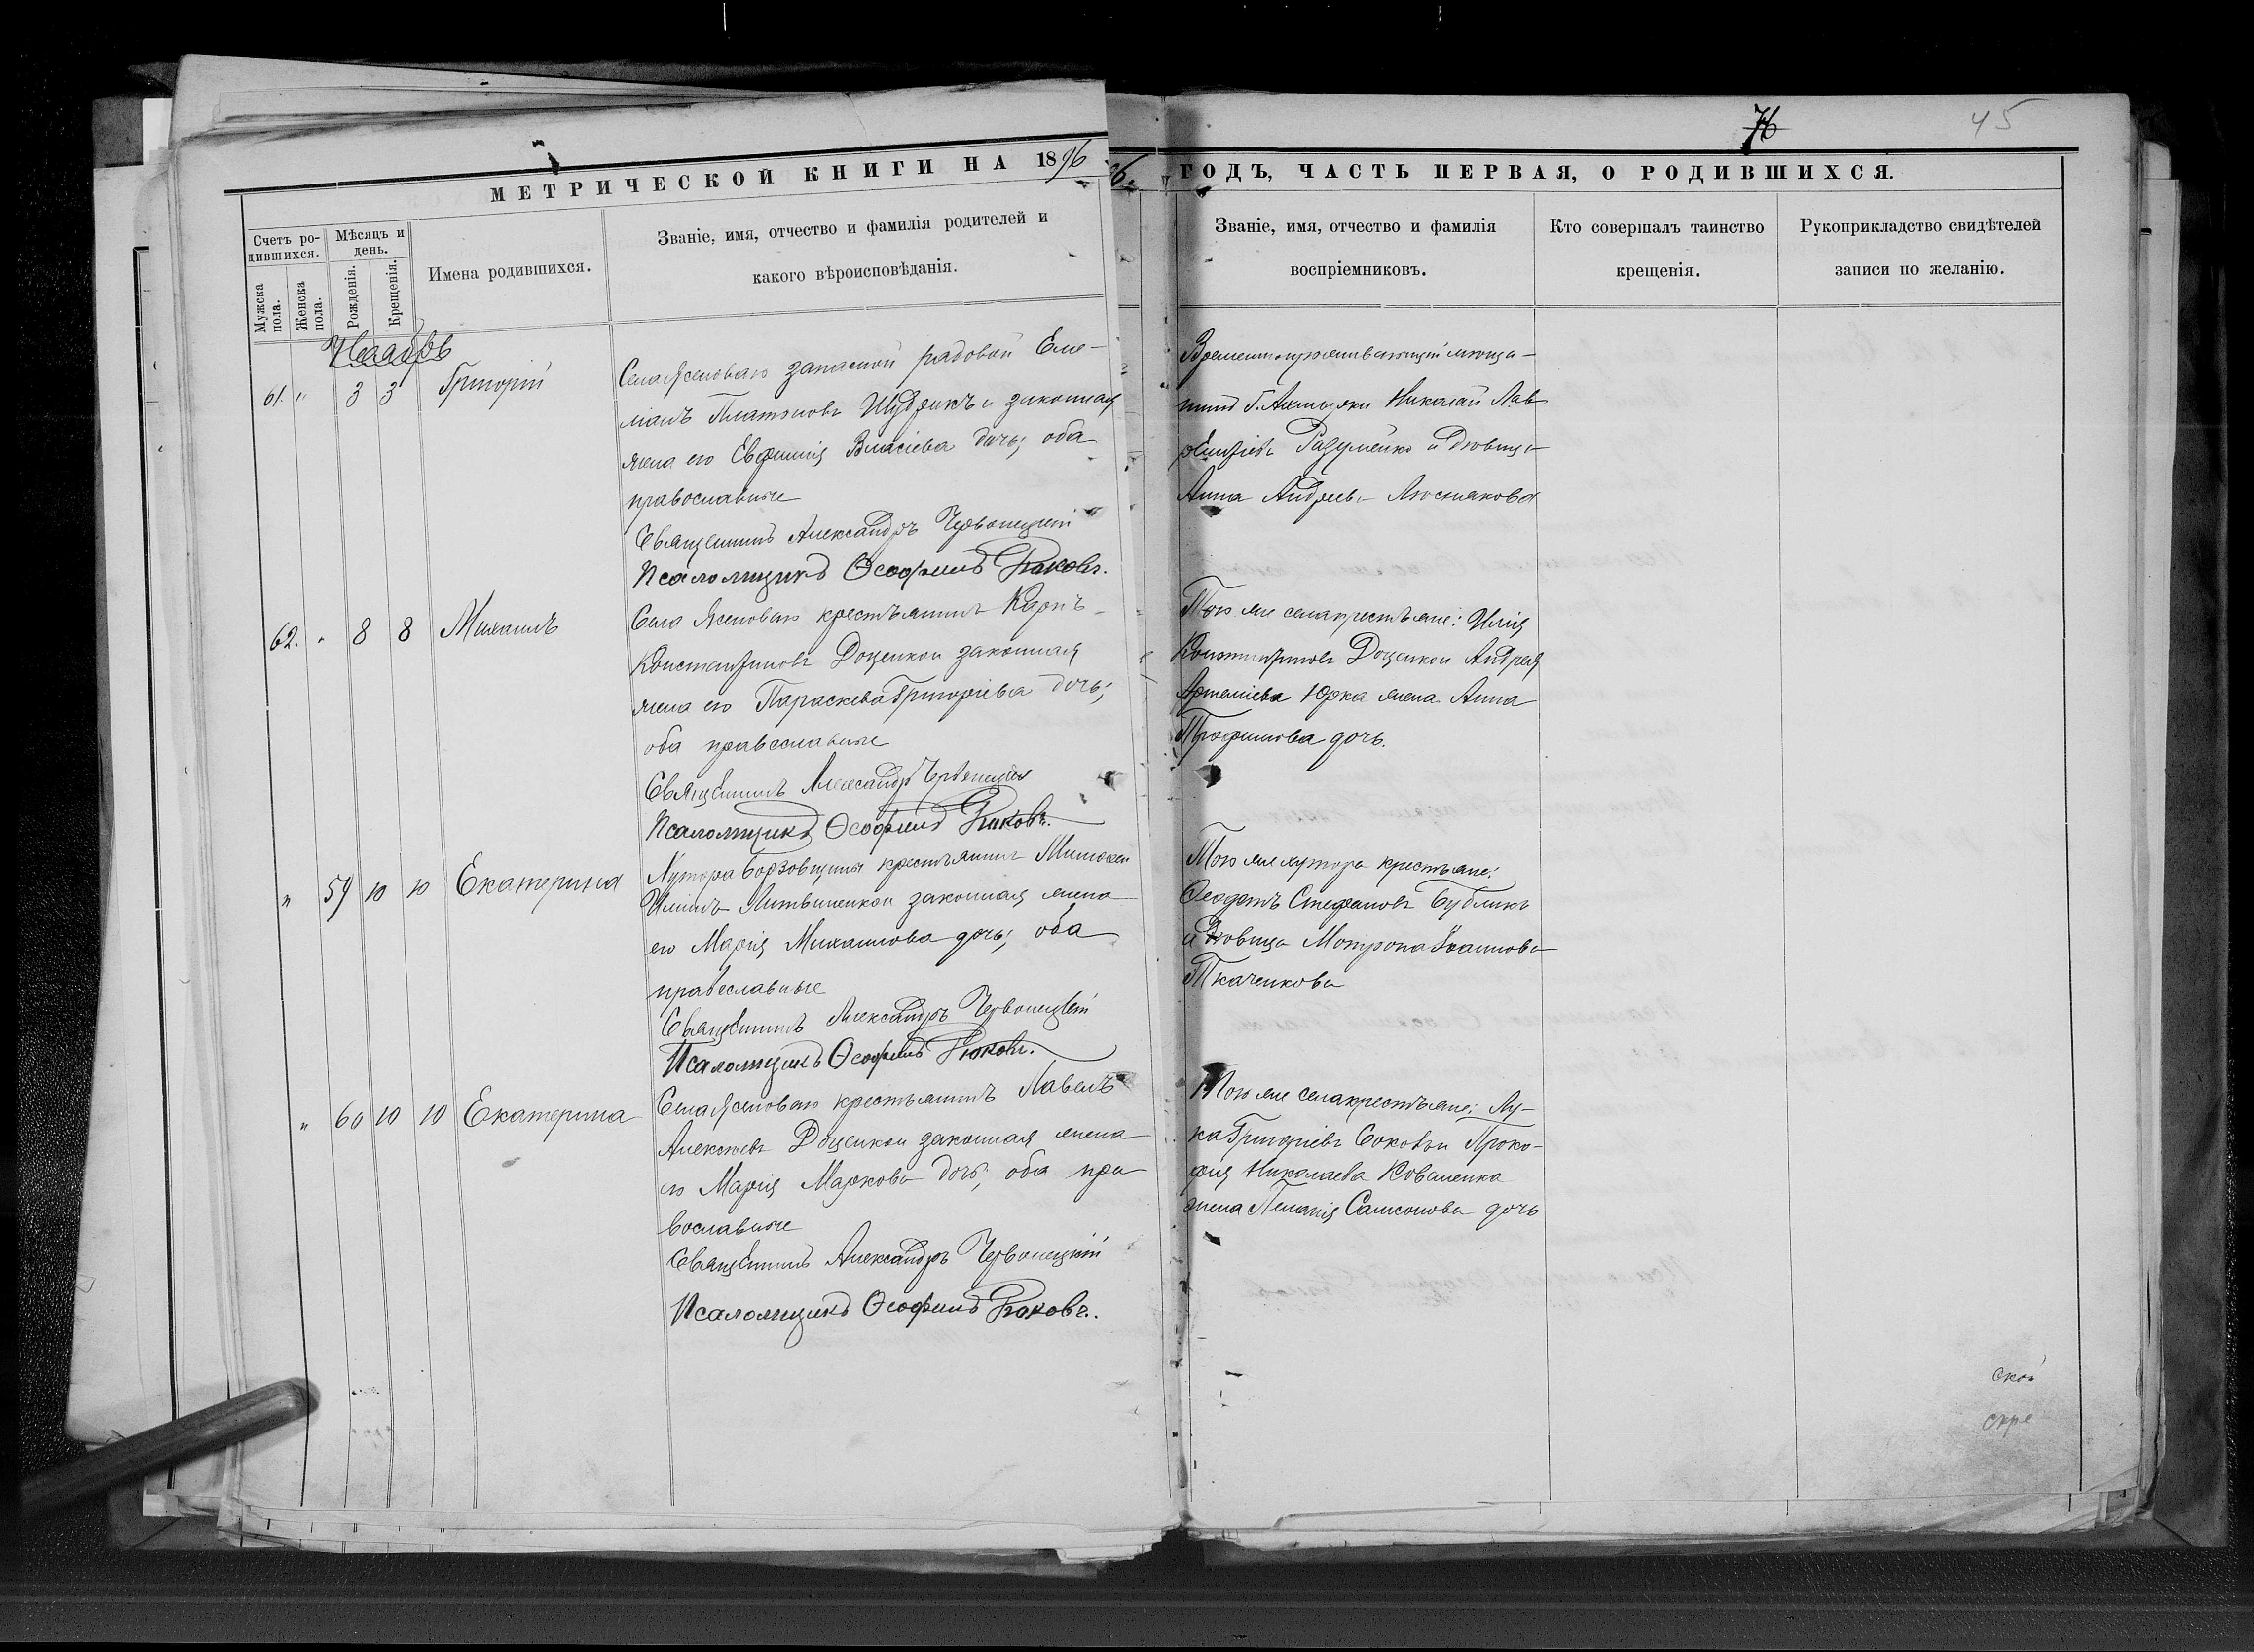 76
45
МЕТРИЧЕСКОЙ КНИГИ НА 1896
ГОДЪ, ЧАСТЬ ПЕРВАЯ, О РОДИВШИХСЯ.
Счетъ родившихся.
Мужска пола.
Женска пола.
Мѣсяцъ и день.
Рожденія.
Крещенія.
Имена родившихся.
Званіе, имя, отчество и фамилія родителей и
какого вѣроисповѣданія.
Званіе, имя, отчество и фамилія
воспріемниковъ.
Кто совершалъ таинство
крещенія.
Рукоприкладство свидѣтелей
записи по желанію.
Ноябрь
61. " 3 3 Григорій
Села Ясеноваго запасной рядовой Еме-
ліанъ Платоновъ Шубрикъ и законная
жена его Евфимія Власіева дочь; оба
православные
Священникъ Александръ Червонецкій
Псаломщикъ Ѳеофилъ
Временно проживающій мѣща-
нинъ г. Николай Лав
рентіевъ Разуменко и вдовица
Анна Андреева
62. " 8 8 Михаилъ
Села Ясеноваго крестьянинъ Карпъ
Константиновъ Доценко и законная
жена его Параскева Григоріева дочь;
оба православные
Священникъ Александръ Червонецкій
Псаломщикъ Ѳеофилъ
Того же села крестьяне: Илія
Константиновъ Доценко и Андрея
Артеміева Юрка жена Анна
Трофимова дочь.
" 59 10 10 Екатерина
Хутора Борзовщины крестьянинъ
Литвиненко и законная жена
его Марія Михаилова дочь; оба
православные
Священникъ Александръ Червонецкій
Псаломщикъ Ѳеофилъ
Того же хутора крестьяне:
Ѳеодотъ Стефановъ Бубликъ
и вдовица Мотрона Іоаннова
Ткаченкова
" 60 10 10 Екатерина
Села Ясеноваго крестьянинъ Павелъ
Алексѣевъ Доценко и законная жена
его Марія Маркова дочь; оба пра
вославные
Священникъ Александръ Червонецкій
Псаломщикъ Ѳеофилъ
Того же села крестьяне: Лу-
ка Григоріевъ и Проко-
фія Николаева Коваленка
жена Пелагія Самсонова дочь
ской
скре